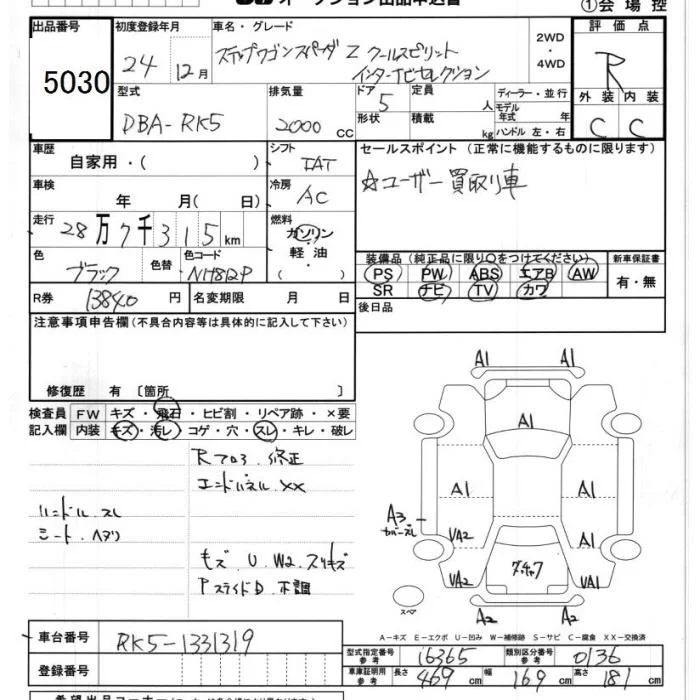 オークション出品申込書
①会場控
出品番号 初度登録年月 車名・グレード 評価点
5030 24年 12月 ステップワゴンスパーダ Z クールスピリット 2WD・4WD R
インターナビセレクション
外装 内装
C C
型式 排気量 ドア 定員 ディーラー・並行
DBA-RK5 2000 CC 5 人 モデル年式 年
形状 積載 kg ハンドル 左・右
車歴 シフト セールスポイント (正常に機能するものに限ります)
自家用・( ) IAT ☆ユーザー買取り車
車検 冷房
年 月( 日) AC
走行 燃料
28万7千315km ガソリン・軽油・( )
色 色替 色コード
ブラック NH812P
装備品 (純正品に限り○をつけてください) 新車保証書
PS PW ABS エアB AW 有・無
SR ナビ TV カワ
R券 13840円 名変期限 月 日 後日品
注意事項申告欄 (不具合内容等は具体的に記入して下さい)
修復歴 有 〔箇所 〕
検査員 FW キズ・飛石・ヒビ割・リペア跡・×要
記入欄 内装 キズ・汚レ・コゲ・穴・スレ・キレ・破レ
Rフロア.修正
エンドパネル.XX
ハンドル.スレ
シート.ヘタリ
キズ U W2 スリキズ
PスライドD 不調
A1 A1
A1
A1 A1 A1
A3
カバーズレ
VA2 A1
VA2 VA1
A2 A2
スペア
A-キズ E-エクボ U-凹み W-補修跡 S-サビ C-腐食 XX-交換済
車台番号 RK5-1331319
型式指定番号 参考 16365 類別区分番号 参考 0136
登録番号
車庫証明用 参考 長さ 469cm 幅 169cm 高さ 181cm